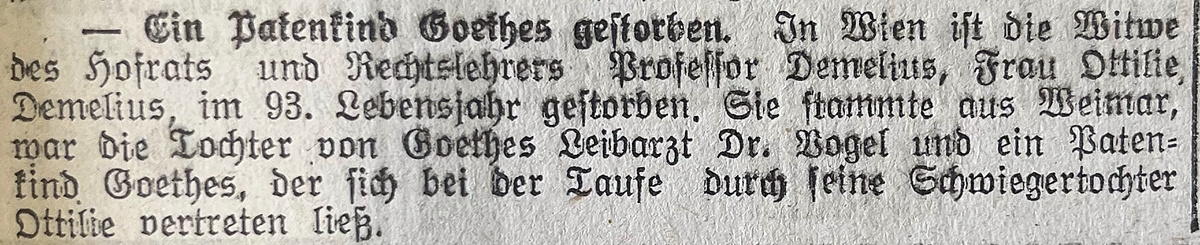 — Ein Patenkind Goethes gestorben. In Wien ist die Witwe
des Hofrats und Rechtslehrers Professor Demelius, Frau Ottilie
Demelius, im 93. Lebensjahr gestorben. Sie stammte aus Weimar,
war die Tochter von Goethes Leibarzt Dr. Vogel und ein Paten-
kind Goethes, der sich bei der Taufe durch seine Schwiegertochter
Ottilie vertreten ließ.